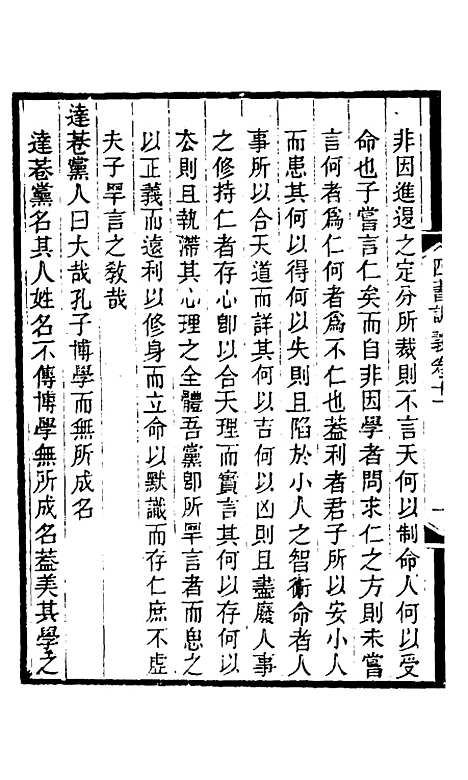 四書訓義卷十一
一
非因進退之定分所裁則不言天何以制命人何以受
命也子嘗言仁矣而自非因學者問求仁之方則未嘗
言何者爲仁何者爲不仁也葢利者君子所以安小人
而患其何以得何以失則且陷於小人之智術命者人
事所以合天道而詳其何以吉何以凶則且盡廢人事
之修持仁者存心卽以合天理而實言其何以存何以
公則且執滯其心理之全體吾黨卽所罕言者而思之
以正義而遠利以修身而立命以默識而存仁庶不虛
夫子罕言之敎哉
達巷黨人曰大哉孔子博學而無所成名
達巷黨名其人姓名不傳博學無所成名葢美其學之